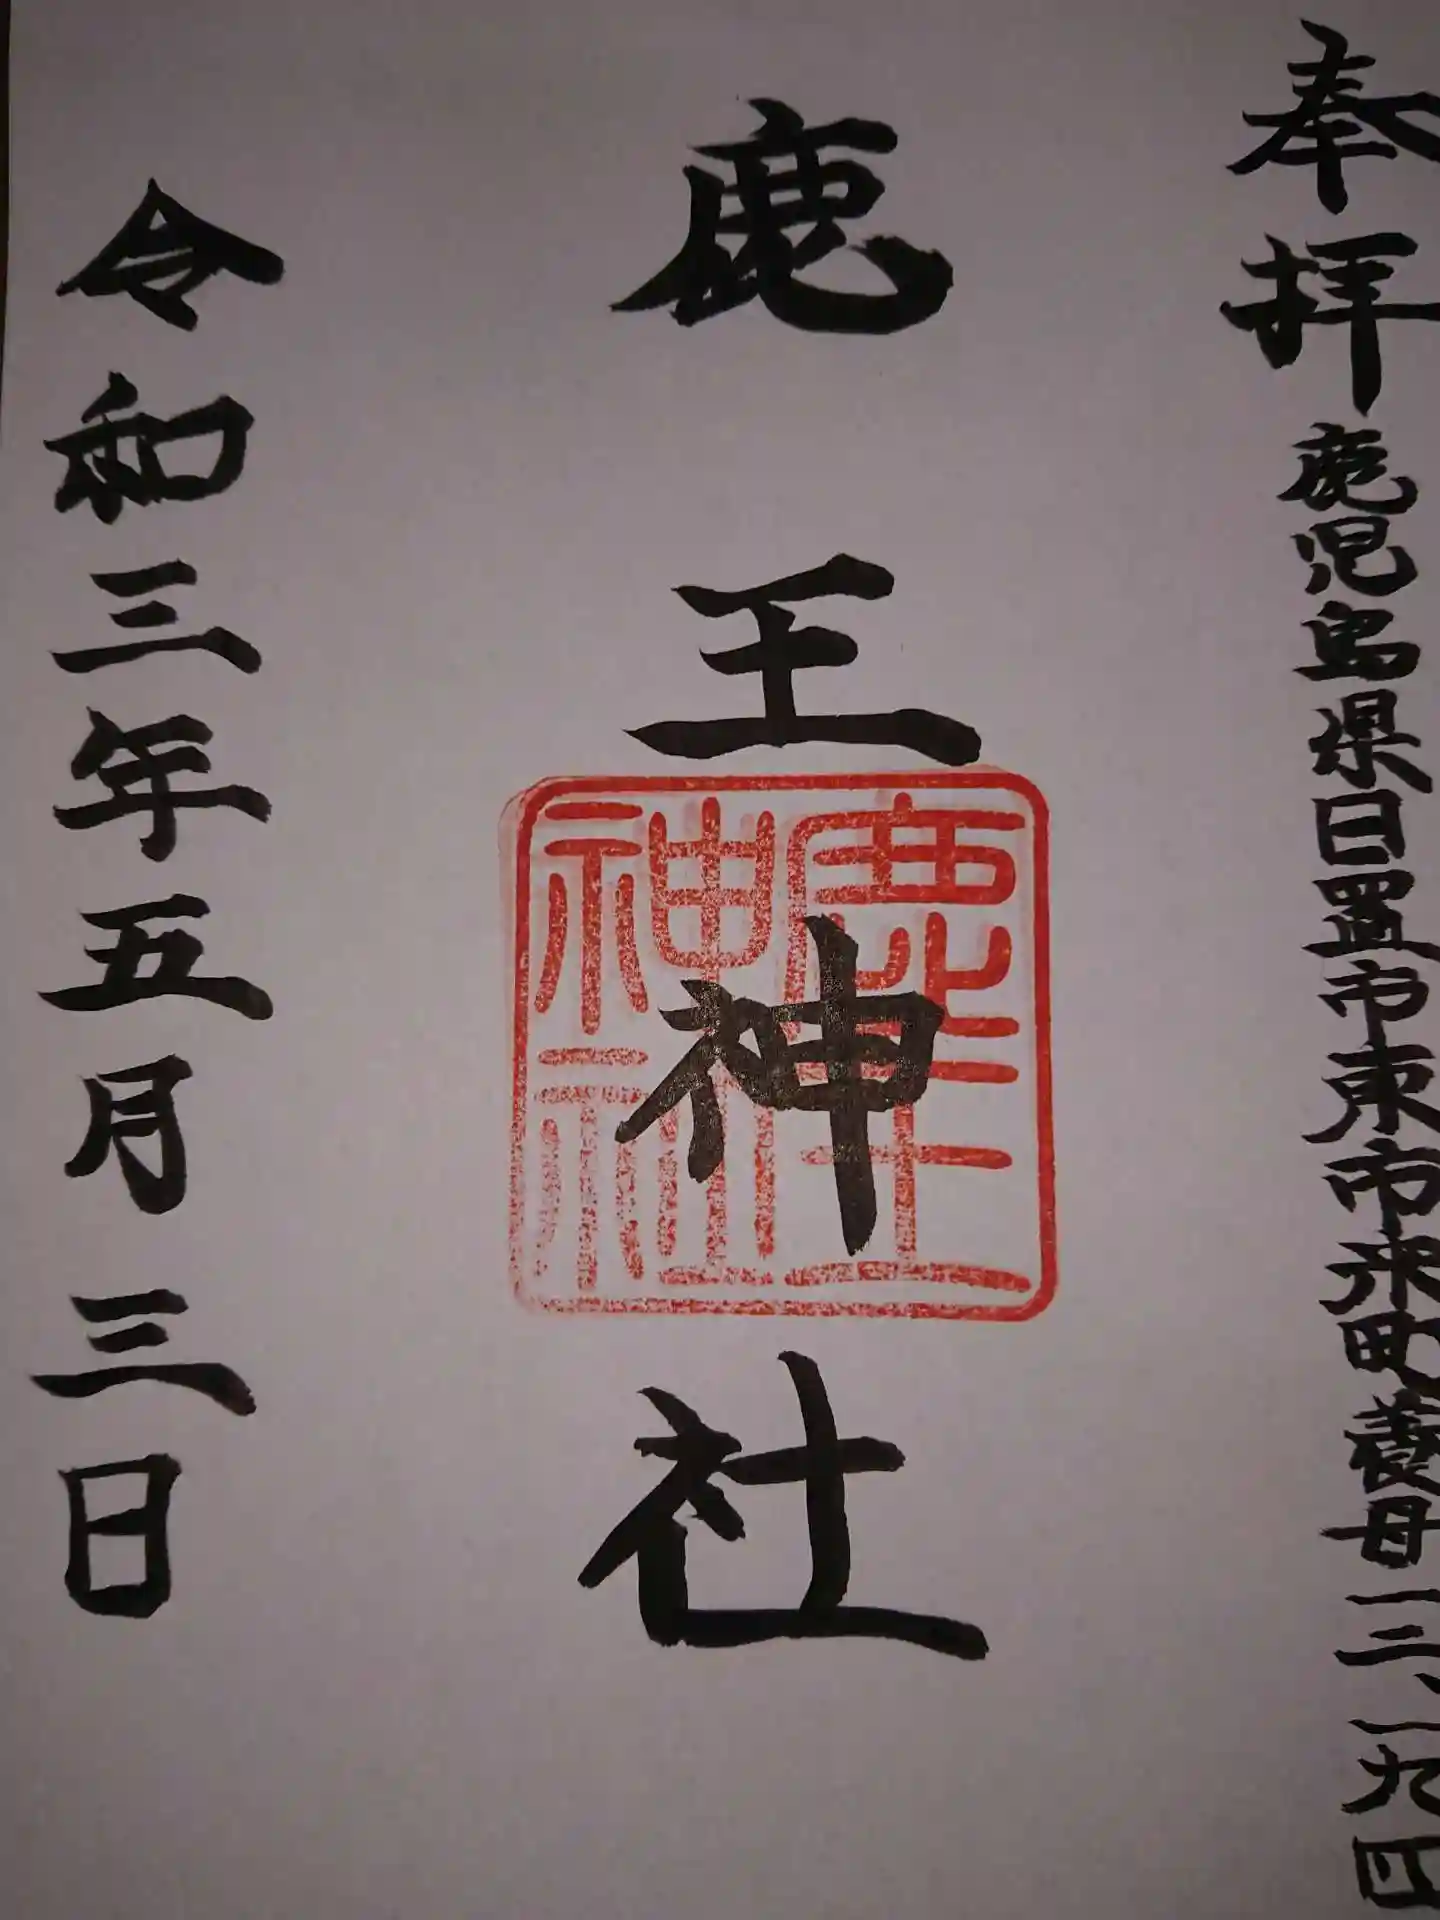 奉拝 鹿児島県日置市東市来町養母一三、一九四
鹿王神社
鹿王神社
令和三年五月三日